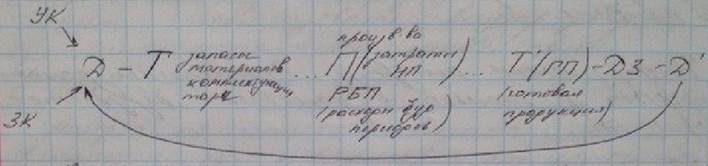 УК
Д – Т запасы материалов комплектующих тары ... П (произв-во затраты НП) ... Т'(ГП) – ДЗ – Д'
РБП (расходы буд периодов)
(готовая продукция)
ЗК